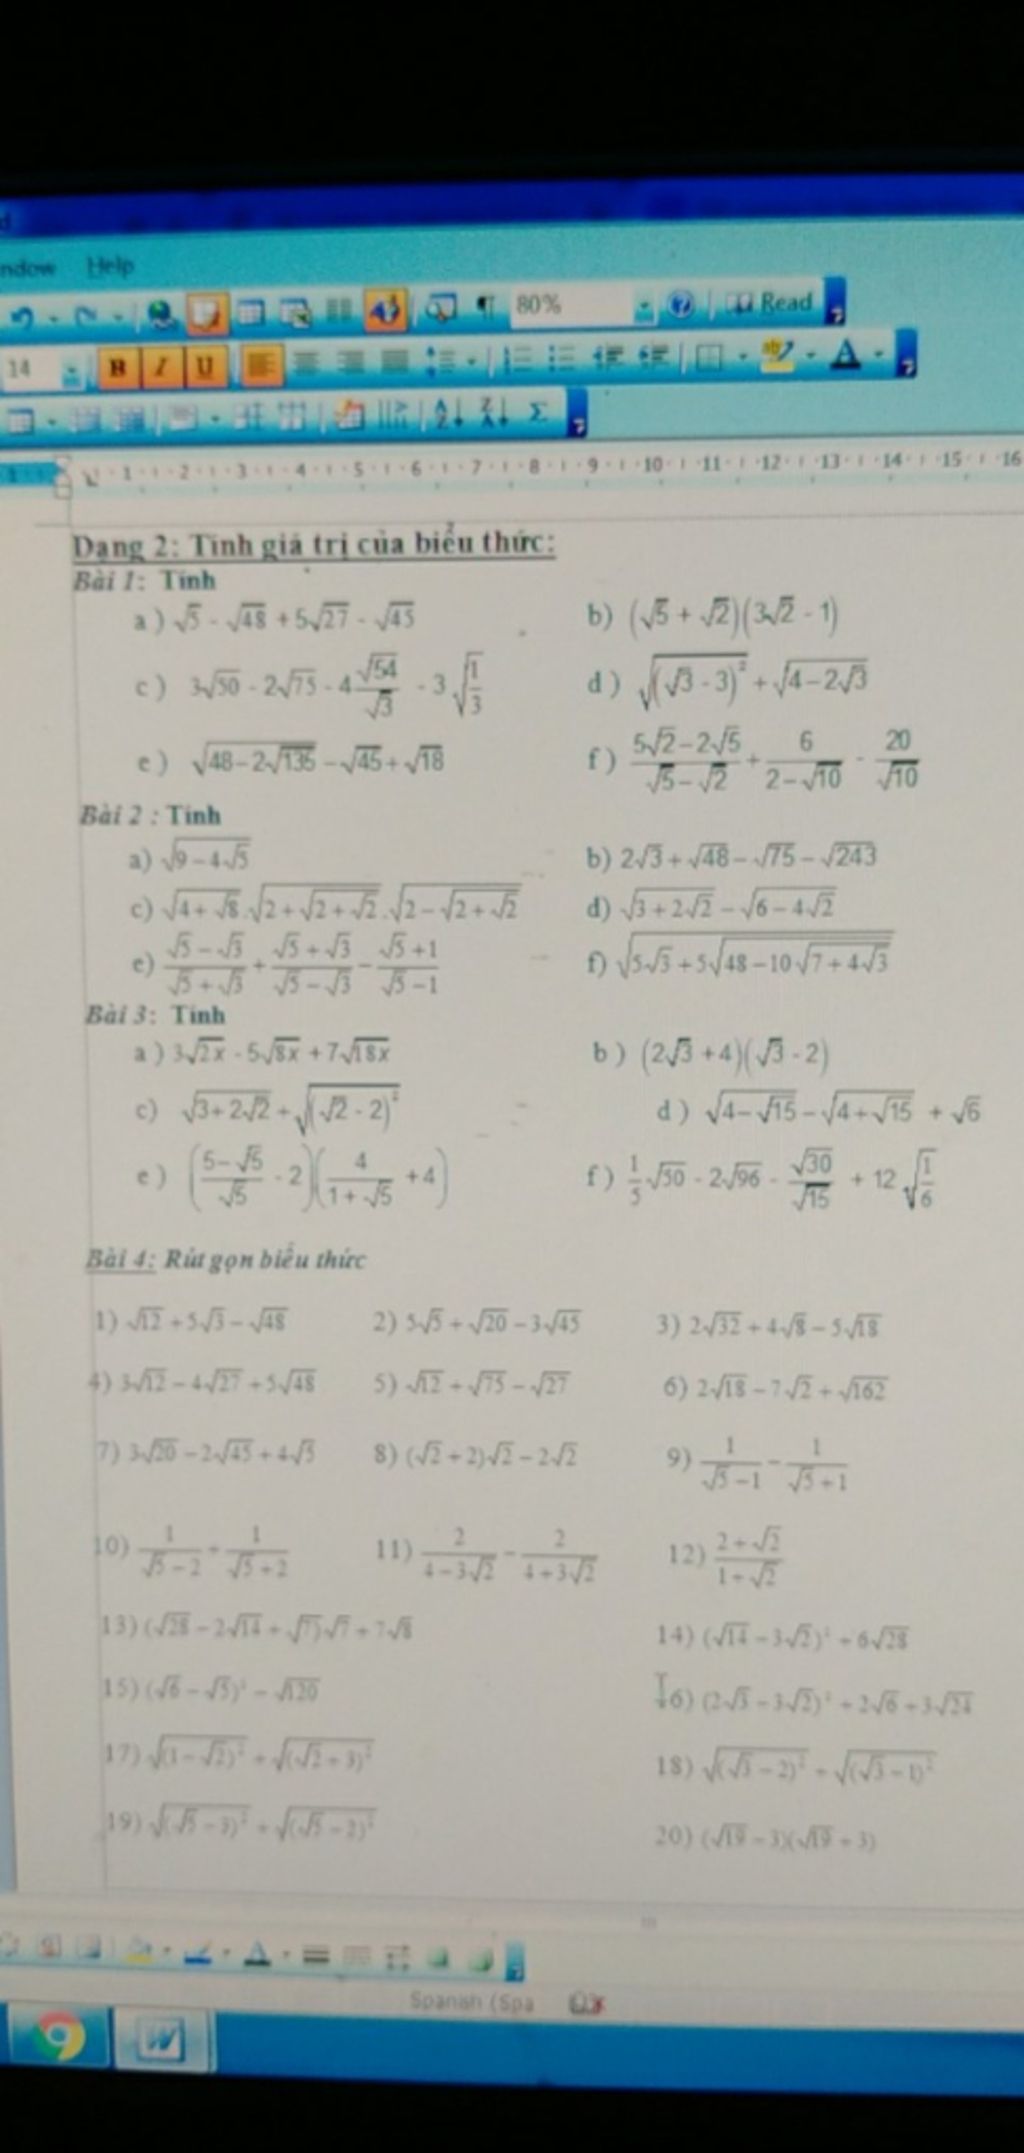 ndow Help
80% Read
14 B I U
1 · 2 · 3 · 4 · 5 · 6 · 7 · 8 · 9 · 10 · 11 · 12 · 13 · 14 · 15 · 16
Dạng 2: Tính giá trị của biểu thức:
Bài 1: Tính
a) √5 - √48 + 5√27 - √45
b) (√5 + √2)(3√2 - 1)
c) 3√50 - 2√75 - 4 √54/√3 - 3√(1/3)
d) √((√3 - 3)²) + √(4 - 2√3)
e) √(48 - 2√135) - √45 + √18
f) (5√2 - 2√5)/(√5 - √2) + 6/(2 - √10) - 20/√10
Bài 2 : Tính
a) √(9 - 4√5)
b) 2√3 + √48 - √75 - √243
c) √(4 + √8) . √(2 + √(2 + √2)) . √(2 - √(2 + √2))
d) √(3 + 2√2) - √(6 - 4√2)
e) (√5 - √3)/(√5 + √3) + (√5 + √3)/(√5 - √3) - (√5 + 1)/(√5 - 1)
f) √(5√3 + 5√(48 - 10√(7 + 4√3)))
Bài 3: Tính
a) 3√2x - 5√8x + 7√18x
b) (2√3 + 4)(√3 - 2)
c) √(3 + 2√2) + √((√2 - 2)²)
d) √(4 - √15) - √(4 + √15) + √6
e) ((5 - √5)/√5 - 2)(4/(1 + √5) + 4)
f) 1/5 √50 - 2√96 - √30/√15 + 12√(1/6)
Bài 4: Rút gọn biểu thức
1) √12 + 5√3 - √48
2) 5√5 + √20 - 3√45
3) 2√32 + 4√8 - 5√18
4) 3√12 - 4√27 + 5√48
5) √12 + √75 - √27
6) 2√18 - 7√2 + √162
7) 3√20 - 2√45 + 4√5
8) (√2 + 2)√2 - 2√2
9) 1/(√5 - 1) - 1/(√5 + 1)
10) 1/(√5 - 2) + 1/(√5 + 2)
11) 2/(4 - 3√2) - 2/(4 + 3√2)
12) (2 + √2)/(1 + √2)
13) (√28 - 2√14 + √7)√7 + 7√8
14) (√14 - 3√2)² + 6√28
15) (√6 - √5)² - √120
16) (2√3 - 3√2)² + 2√6 + 3√24
17) √((1 - √2)²) + √((√2 + 3)²)
18) √((√3 - 2)²) + √((√3 - 1)²)
19) √((√5 - 3)²) + √((√5 - 2)²)
20) (√19 - 3)(√19 + 3)
Spanish (Spa